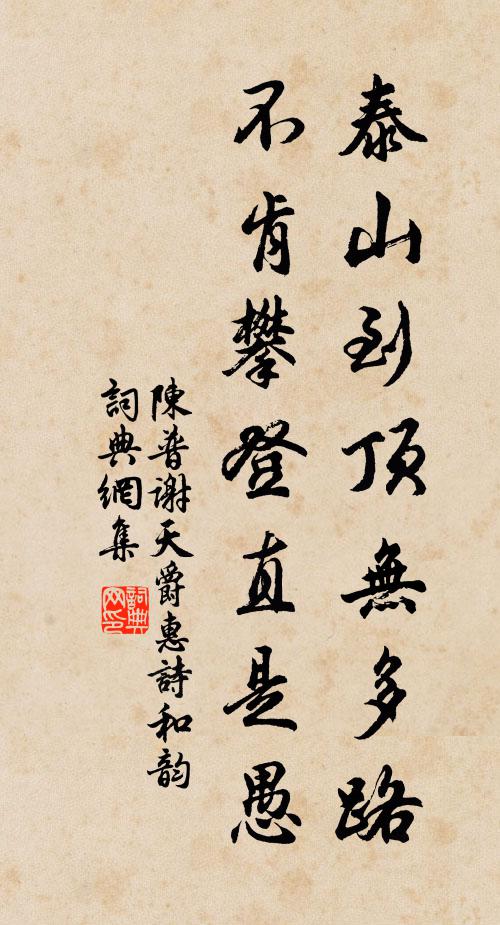 泰山到頂無多路
不肯攀登直是愚
陳普謝天爵惠詩和韵
詞典網集
詞典网印